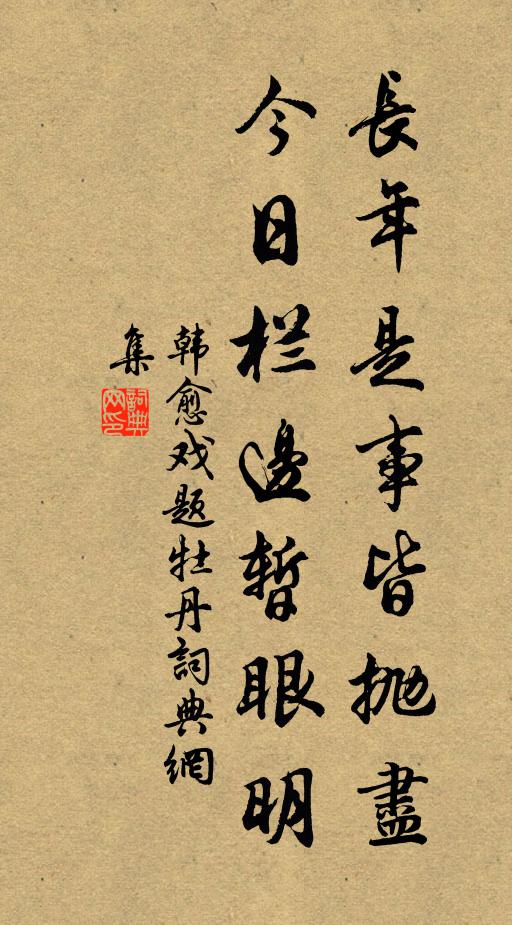 長年是事皆抛盡
今日栏邊暫眼明
韩愈戏题牡丹詞典網
集
詞典
网印